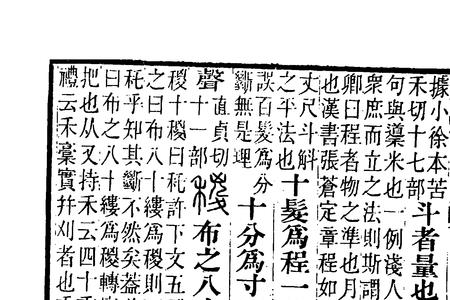 據小徐本苦
禾切十七部
斗者量也
句與𥢶米也一例淺人
衆庶而立之法則斯謂
卿曰程者物之準也月
也漢書張蒼定章程如
丈尺斗斛
之平法也
十髮爲程一
誤百髮爲分
斷無是理
十分爲寸
聲
直貞切
十一部
稯布之八
稯十稯曰秅許下文五
之曰布八十縷爲稯則
秅乎知其斷不然矣葢
曰布之八十縷爲稯轉
把也从又持禾云四十
禮云禾稾實幷刈者也